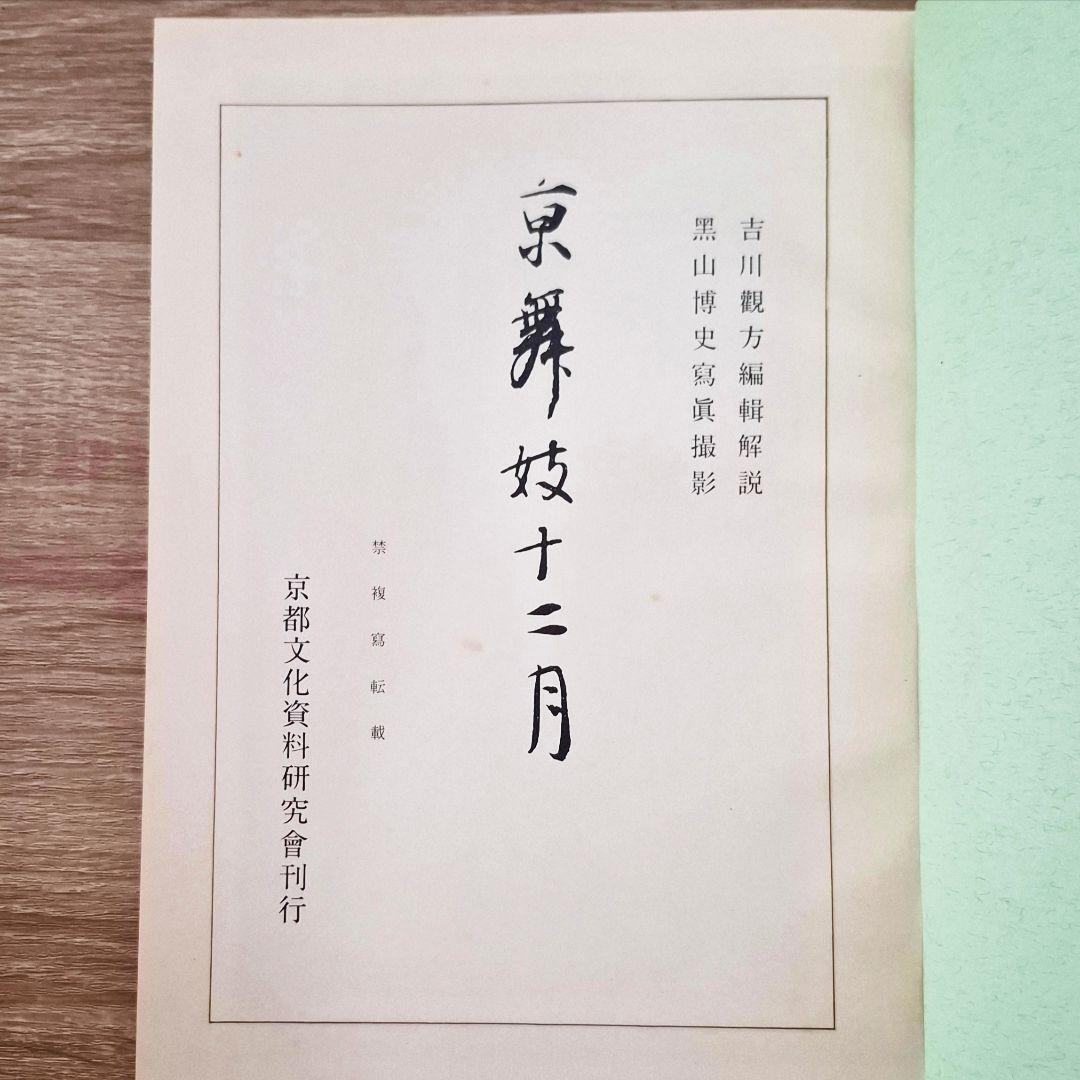 吉川觀方編輯解説
黑山博史寫眞撮影
京舞妓十二月
禁複寫転載
京都文化資料研究會刊行